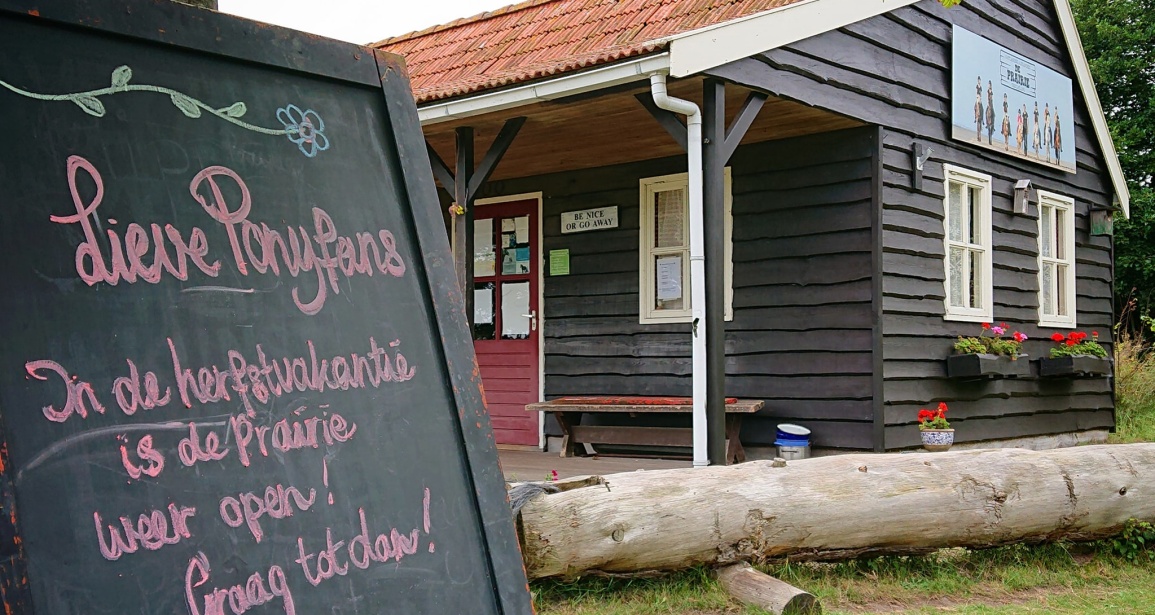 Lieve Ponyfans
In de herfstvakantie
is de prairie
weer open!
Graag tot dan!
BE NICE
OR GO AWAY
DE
PRAIRIE